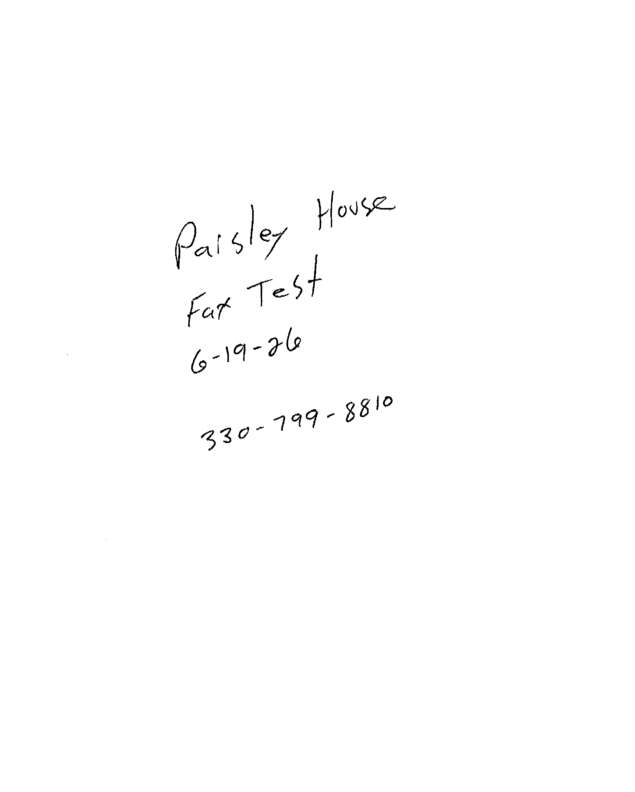 Paisley House
Fax Test
6-19-26
330-799-8810